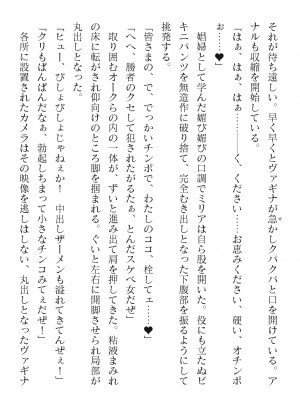 それが待ち遠しい。早く早くとヴァギナが急かしクパクパと口を開けている。ア
ナルも収縮を開始している。
「はぁ、はぁ、はぁ――――く、ください……お恵みください……硬い、オチンポ
お♥」
娼婦として学んだ媚び媚びの口調でミリアは自ら股を開いた。役にも立たぬビ
キニパンツを無造作に破り捨て、完全むき出しとなった下腹部を振るようにして
挑発する。
「皆さまの、で、でっかいチンポで、わたしのココ、栓してェ……♥」
「へへ、勝者のクセして犯されたがるたぁ、とんだスケベ女だぜ」
取り囲むオークらの内の一体が、ずいと進み出て肩を押してきた。粘液まみれ
の床に転がされ仰向けのところ脚を掴まれる。ぐいと左右に開脚させられ局部が
丸出しとなった。
「ヒュー、びしょびしょじゃねぇか！　中出しザーメンも溢れてきてんぜぇ！」
「クリもぱんぱんだなぁ、勃起しちまって小さなチンコみてぇだぜ！」
各所に設置されたカメラはその映像を逃しはしない、丸出しとなったヴァギナ